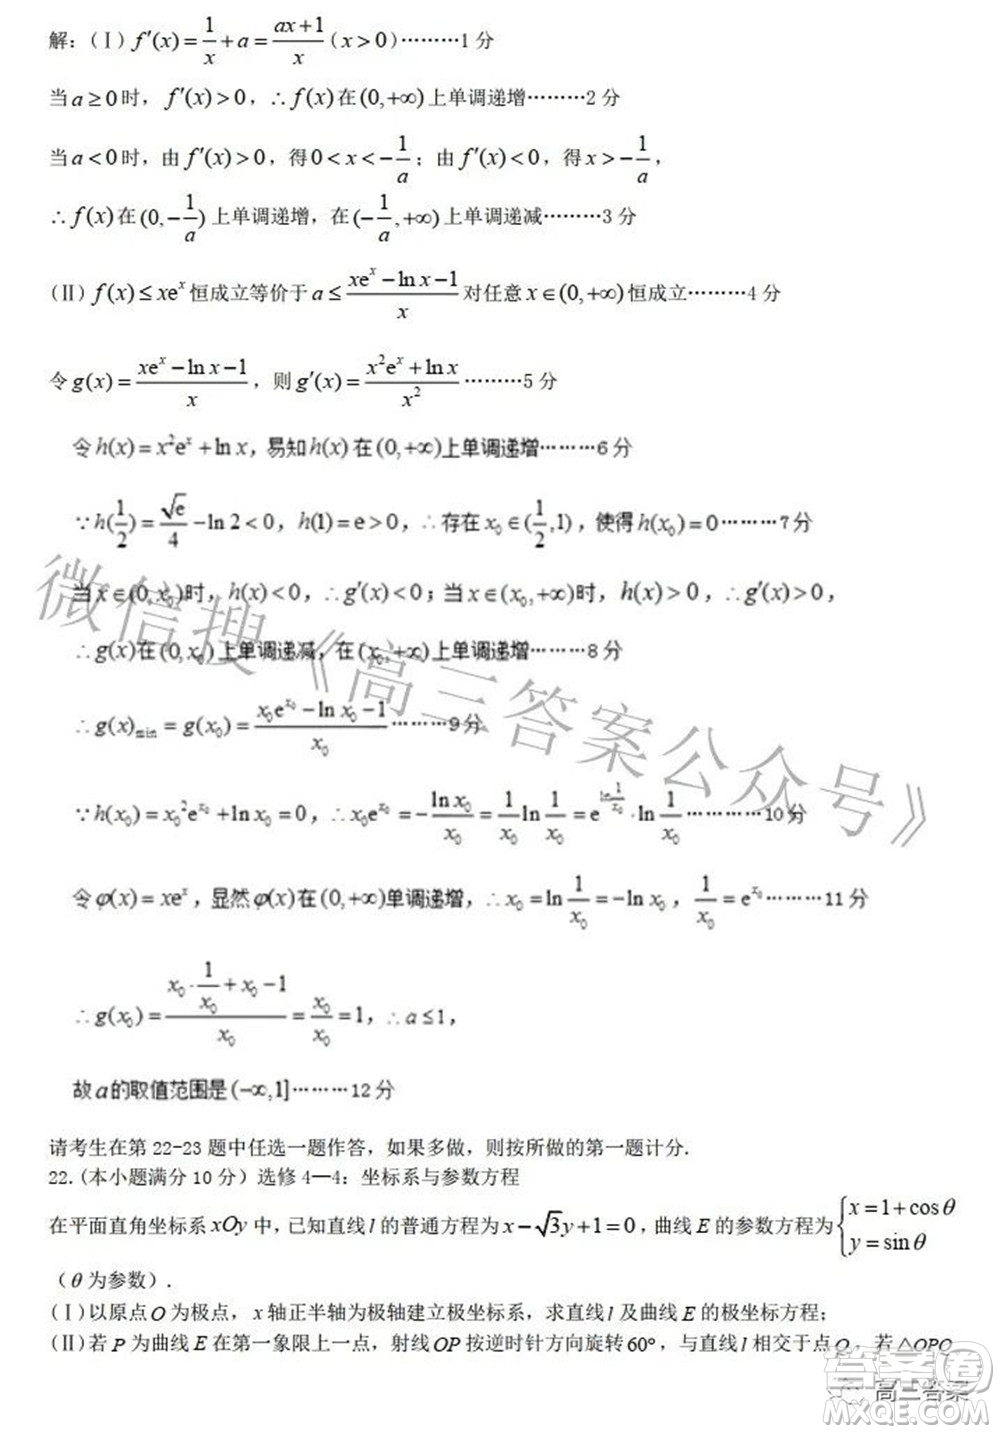 解：（Ⅰ）f′(x)=1/x+a=(ax+1)/x（x>0）………1分
当a≥0时，f′(x)>0，∴f(x)在(0,+∞)上单调递增………2分
当a<0时，由f′(x)>0，得0<x<-1/a；由f′(x)<0，得x>-1/a，
∴f(x)在(0,-1/a)上单调递增，在(-1/a,+∞)上单调递减………3分
（Ⅱ）f(x)≤xe^x恒成立等价于a≤(xe^x-ln x-1)/x对任意x∈(0,+∞)恒成立………4分
令g(x)=(xe^x-ln x-1)/x，则g′(x)=(x²e^x+ln x)/x²………5分
令h(x)=x²e^x+ln x，易知h(x)在(0,+∞)上单调递增………6分
∵h(1/2)=√e/4-ln 2<0，h(1)=e>0，∴存在x₀∈(1/2,1)，使得h(x₀)=0………7分
当x∈(0,x₀)时，h(x)<0，∴g′(x)<0；当x∈(x₀,+∞)时，h(x)>0，∴g′(x)>0，
∴g(x)在(0,x₀)上单调递减，在(x₀,+∞)上单调递增………8分
∴g(x)min=g(x₀)=(x₀e^x₀-ln x₀-1)/x₀………9分
∵h(x₀)=x₀²e^x₀+ln x₀=0，∴x₀e^x₀=-ln x₀/x₀=1/x₀ ln 1/x₀=e^(ln 1/x₀)·ln 1/x₀…………10分
令φ(x)=xe^x，显然φ(x)在(0,+∞)单调递增，∴x₀=ln 1/x₀=-ln x₀，1/x₀=e^x₀………11分
∴g(x₀)=(x₀·1/x₀+x₀-1)/x₀=x₀/x₀=1，∴a≤1，
故a的取值范围是(-∞,1]………12分
请考生在第 22-23 题中任选一题作答，如果多做，则按所做的第一题计分.
22.(本小题满分 10 分）选修 4—4：坐标系与参数方程
在平面直角坐标系xOy中，已知直线l的普通方程为x-√3y+1=0，曲线E的参数方程为{x=1+cosθ
y=sinθ
（θ为参数）.
（Ⅰ）以原点O为极点，x轴正半轴为极轴建立极坐标系，求直线l及曲线E的极坐标方程；
（Ⅱ）若P为曲线E在第一象限上一点，射线OP按逆时针方向旋转60°，与直线l相交于点Q，若△OPQ
微信搜《高三答案公众号》
答案圈
高三答案
MXQE.COM